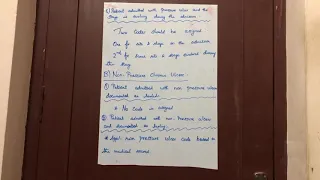 c) Patient admitted with pressure ulcer and the
stage is evolving during the admission
Two codes should be assigned
One for site & stage on the admission
2nd for same site & stage evolved during
the stay
B) Non-Pressure Chronic Ulcers:-
① Patient admitted with non pressure ulcers
documented as healed.
* No Code is assigned
② Patient admitted with non-pressure ulcers
documented as healing.
non pressure ulcer code based on
the medical record